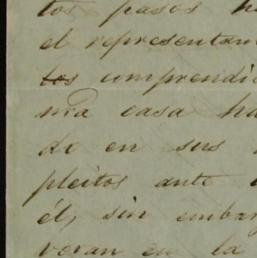 tos pasos ha
el representan
los comprendi
mia casa ha
do en sus
pleitos ante
él, sin embar
veran en la